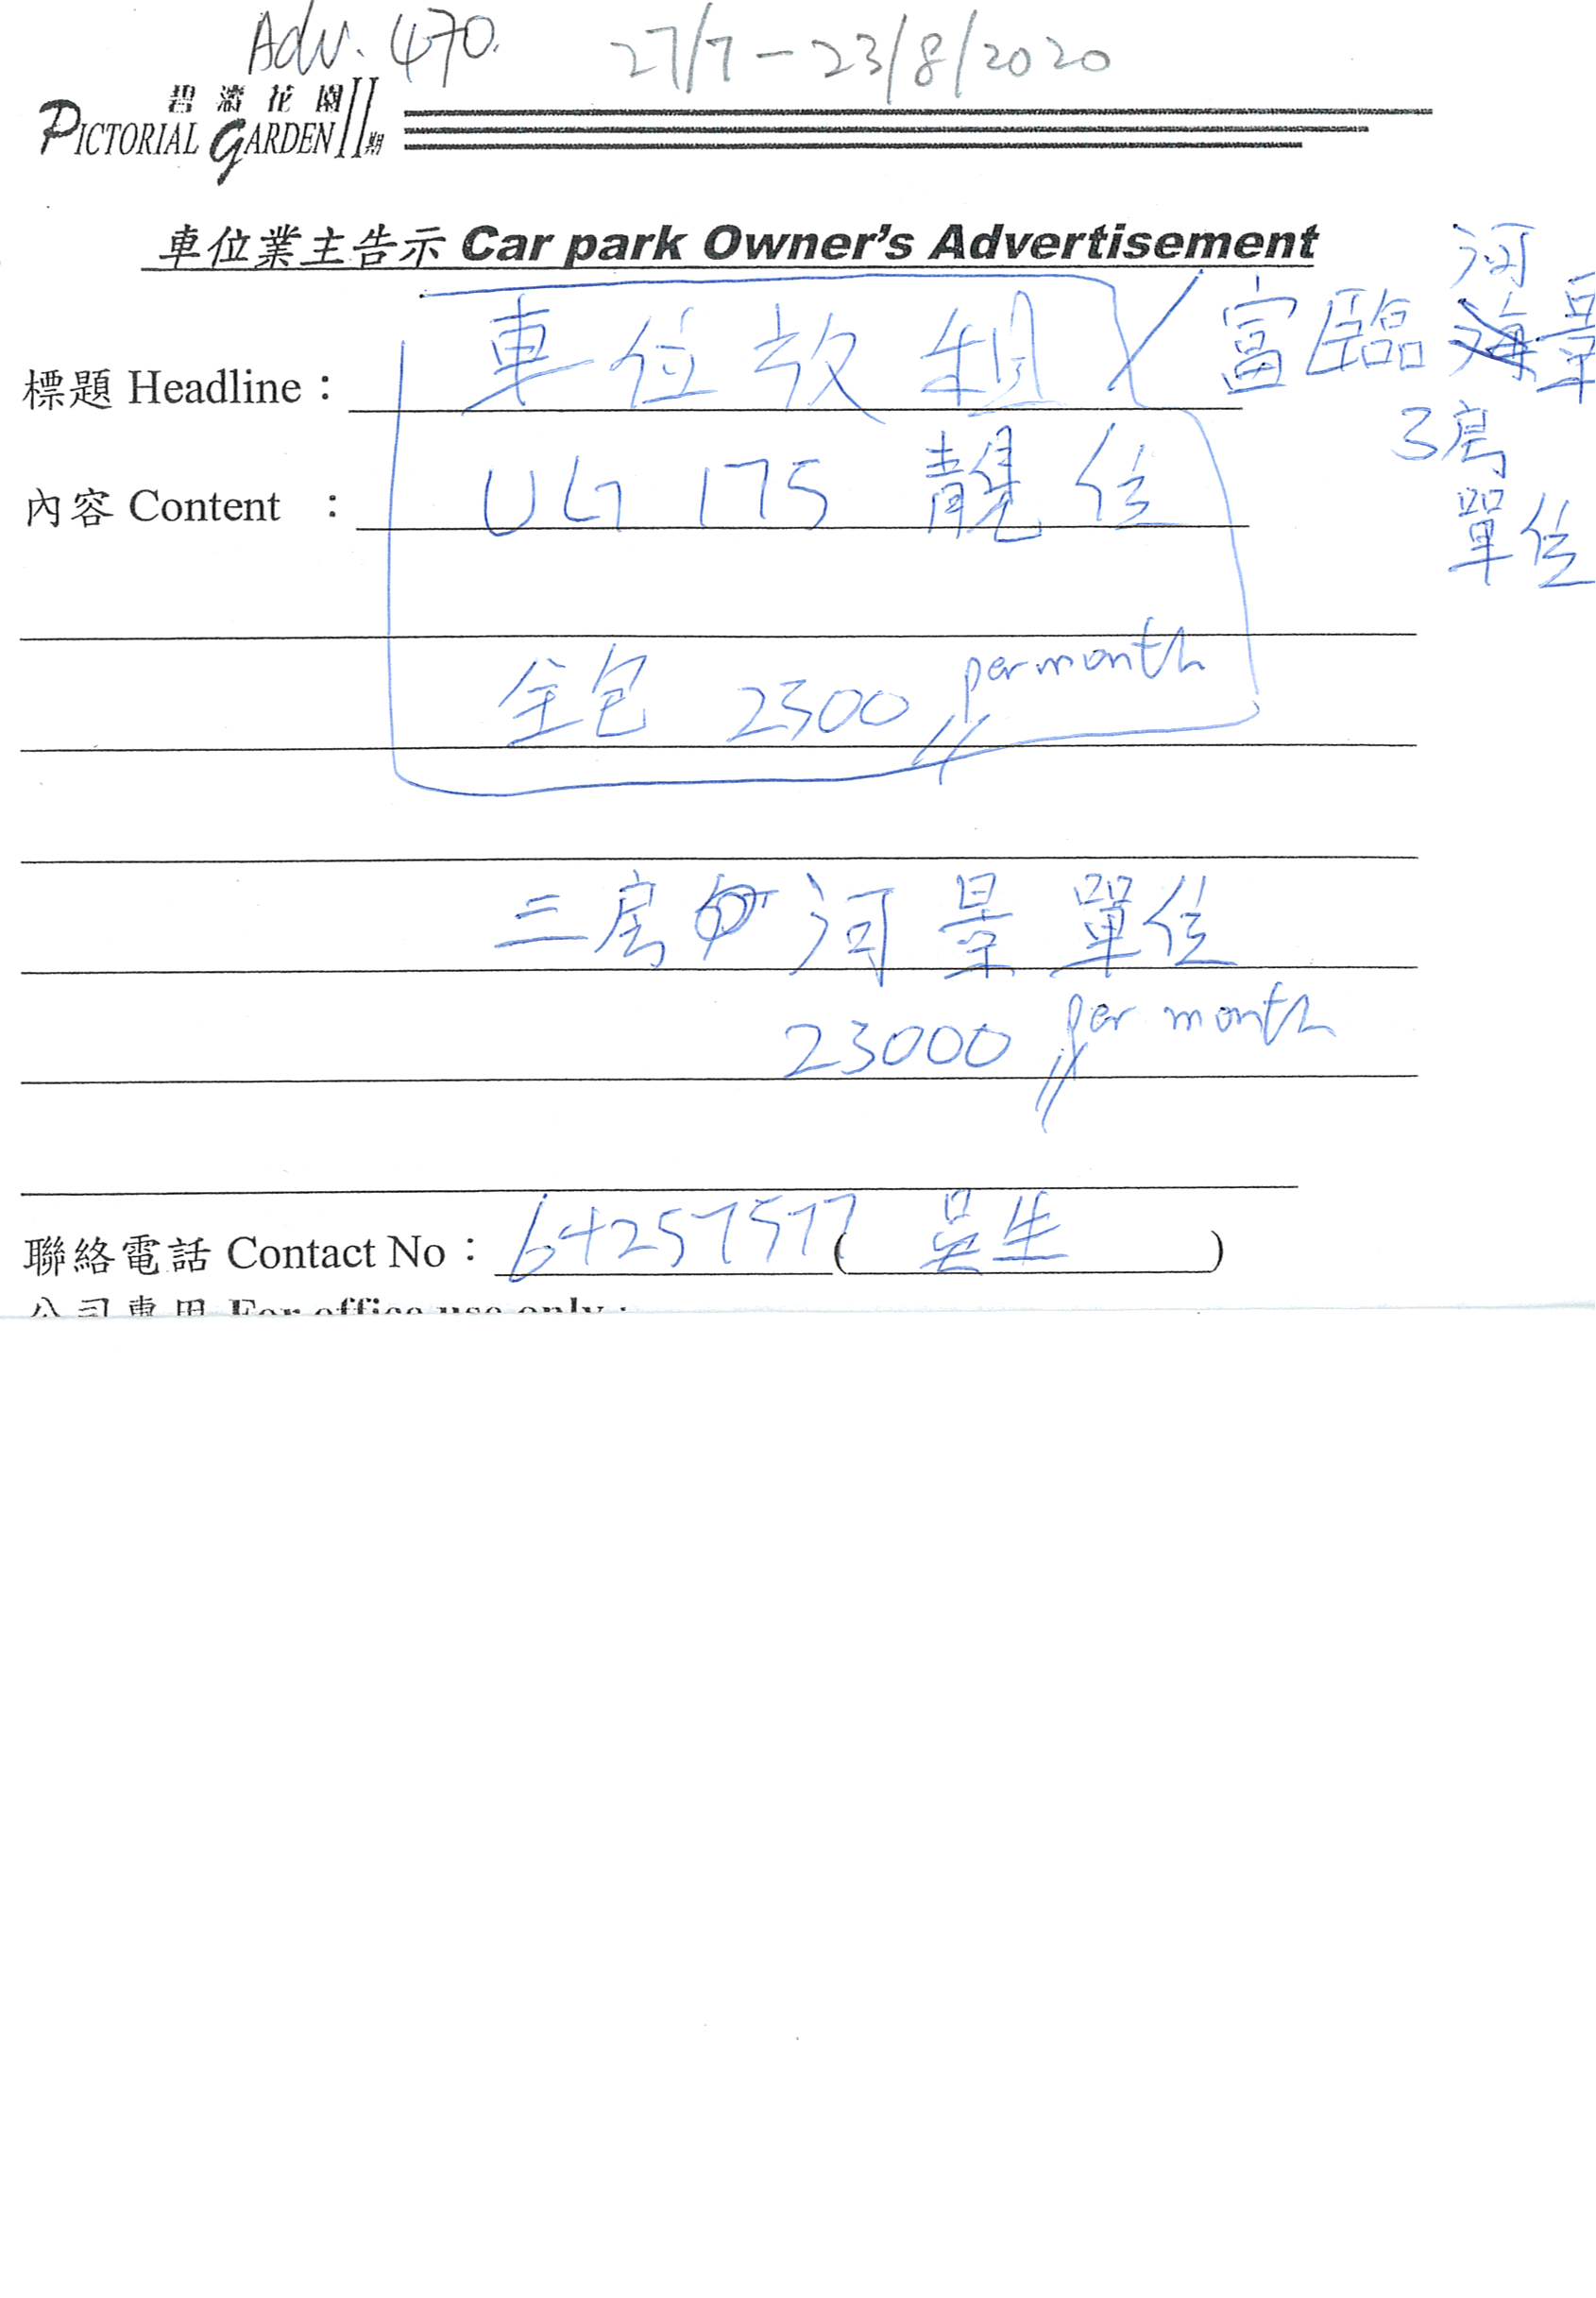 Adv. 470. 27/7 - 23/8/2020
碧濤花園II期
PICTORIAL GARDEN
車位業主告示 Car park Owner's Advertisement
標題 Headline: 車位放租 / 富臨河景
3房
單位
內容 Content : UG 175 靚位
全包 2300 per month
三房 河景 單位
23000 per month
聯絡電話 Contact No: 64257577 (吳生)
公司專用 For office use only: